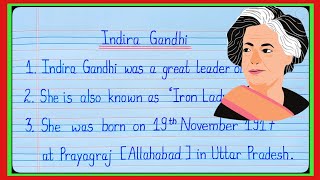 Indira Gandhi
1. Indira Gandhi was a great leader o
2. She is also known as "Iron Lad
3. She was born on 19th November 1917
at Prayagraj [Allahabad] in Uttar Pradesh.